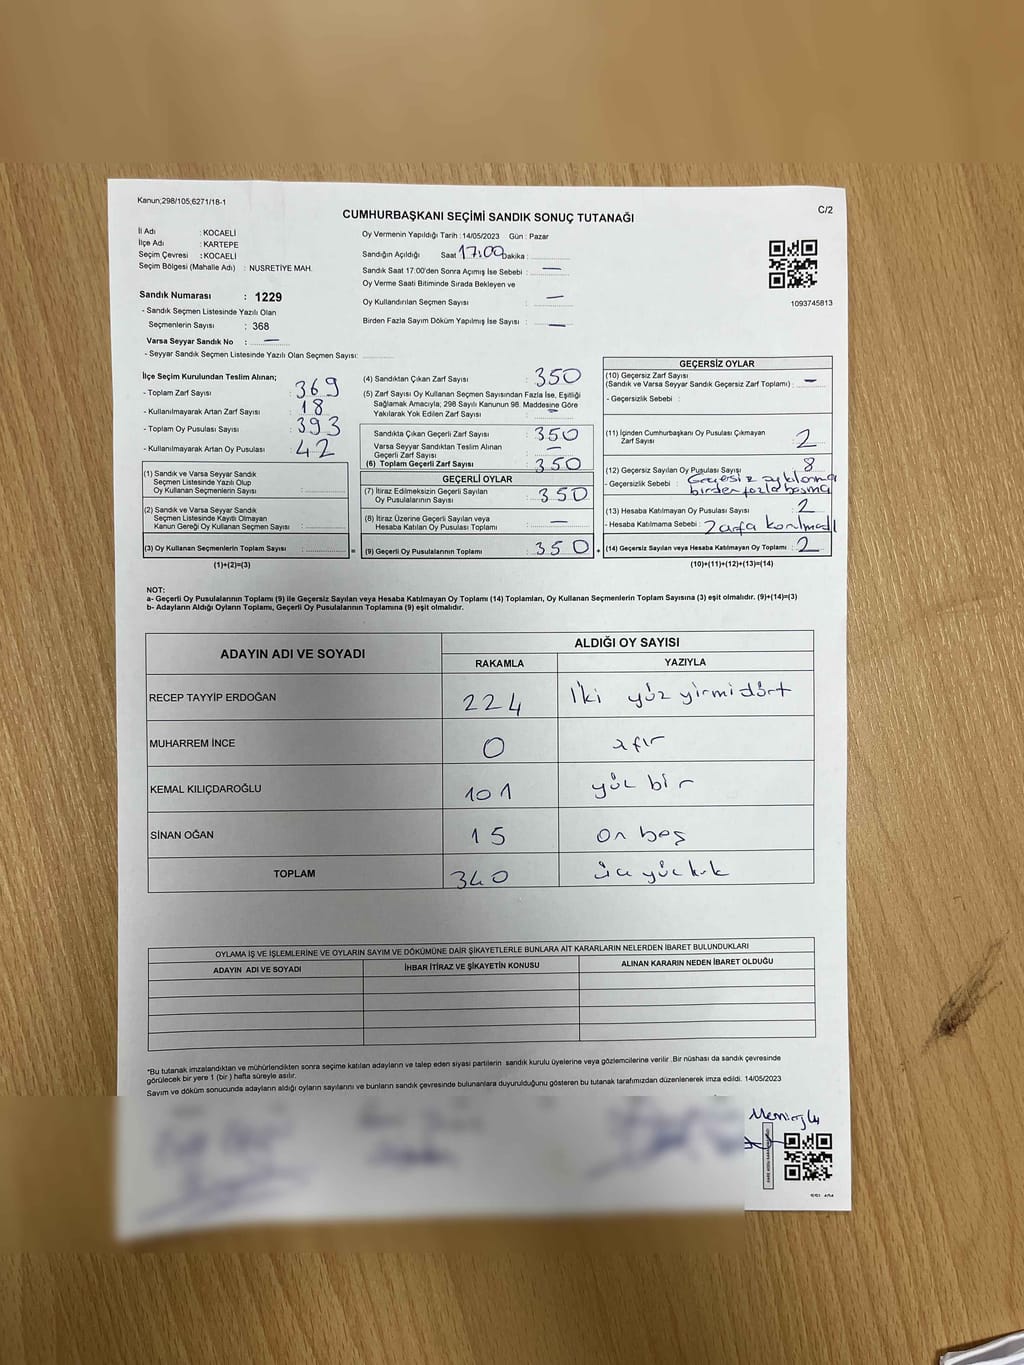 Kanun;298/105;6271/18-1
C/2
CUMHURBAŞKANI SEÇİMİ SANDIK SONUÇ TUTANAĞI
İl Adı : KOCAELİ
İlçe Adı : KARTEPE
Seçim Çevresi : KOCAELİ
Seçim Bölgesi (Mahalle Adı) : NUSRETİYE MAH.
Sandık Numarası : 1229
- Sandık Seçmen Listesinde Yazılı Olan
Seçmenlerin Sayısı : 368
Varsa Seyyar Sandık No : —
- Seyyar Sandık Seçmen Listesinde Yazılı Olan Seçmen Sayısı:
Oy Vermenin Yapıldığı Tarih : 14/05/2023 Gün : Pazar
Sandığın Açıldığı Saat 17:00 Dakika :
Sandık Saat 17:00'den Sonra Açımış İse Sebebi : —
Oy Verme Saati Bitiminde Sırada Bekleyen ve
Oy Kullandırılan Seçmen Sayısı : —
Birden Fazla Sayım Döküm Yapılmış İse Sayısı : —
1093745813
İlçe Seçim Kurulundan Teslim Alınan;
- Toplam Zarf Sayısı : 369
- Kullanılmayarak Artan Zarf Sayısı : 18
- Toplam Oy Pusulası Sayısı : 393
- Kullanılmayarak Artan Oy Pusulası : 42
(1) Sandık ve Varsa Seyyar Sandık
Seçmen Listesinde Yazılı Olup
Oy Kullanan Seçmenlerin Sayısı :
(2) Sandık ve Varsa Seyyar Sandık
Seçmen Listesinde Kayıtlı Olmayan
Kanun Gereği Oy Kullanan Seçmen Sayısı :
(3) Oy Kullanan Seçmenlerin Toplam Sayısı : =
(1)+(2)=(3)
(4) Sandıktan Çıkan Zarf Sayısı : 350
(5) Zarf Sayısı Oy Kullanan Seçmen Sayısından Fazla İse, Eşitliği
Sağlamak Amacıyla, 298 Sayılı Kanunun 98. Maddesine Göre
Yakılarak Yok Edilen Zarf Sayısı : —
Sandıkta Çıkan Geçerli Zarf Sayısı : 350
Varsa Seyyar Sandıktan Teslim Alınan
Geçerli Zarf Sayısı : —
(6) Toplam Geçerli Zarf Sayısı : 350
GEÇERLİ OYLAR
(7) İtiraz Edilmeksizin Geçerli Sayılan
Oy Pusulalarının Sayısı : 350
(8) İtiraz Üzerine Geçerli Sayılan veya
Hesaba Katılan Oy Pusulası Toplamı : —
(9) Geçerli Oy Pusulalarının Toplamı : 350 +
GEÇERSİZ OYLAR
(10) Geçersiz Zarf Sayısı
(Sandık ve Varsa Seyyar Sandık Geçersiz Zarf Toplamı) : —
- Geçersizlik Sebebi :
(11) İçinden Cumhurbaşkanı Oy Pusulası Çıkmayan
Zarf Sayısı : 2
(12) Geçersiz Sayılan Oy Pusulası Sayısı : 8
- Geçersizlik Sebebi : Geçersiz
birden fazla basma
(13) Hesaba Katılmayan Oy Pusulası Sayısı : 2
- Hesaba Katılmama Sebebi : Zarfa konulmadı
(14) Geçersiz Sayılan veya Hesaba Katılmayan Oy Toplamı : 2
(10)+(11)+(12)+(13)=(14)
NOT:
a- Geçerli Oy Pusulalarının Toplamı (9) ile Geçersiz Sayılan veya Hesaba Katılmayan Oy Toplamı (14) Toplamları, Oy Kullanan Seçmenlerin Toplam Sayısına (3) eşit olmalıdır. (9)+(14)=(3)
b- Adayların Aldığı Oyların Toplamı, Geçerli Oy Pusulalarının Toplamına (9) eşit olmalıdır.
ADAYIN ADI VE SOYADI
ALDIĞI OY SAYISI
RAKAMLA YAZIYLA
RECEP TAYYİP ERDOĞAN 224 İki yüz yirmi dört
MUHARREM İNCE 0 sıfır
KEMAL KILIÇDAROĞLU 101 yüz bir
SİNAN OĞAN 15 on beş
TOPLAM 340 üç yüz kırk
OYLAMA İŞ VE İŞLEMLERİNE VE OYLARIN SAYIM VE DÖKÜMÜNE DAİR ŞİKAYETLERLE BUNLARA AİT KARARLARIN NELERDEN İBARET BULUNDUKLARI
ADAYIN ADI VE SOYADI İHBAR İTİRAZ VE ŞİKAYETİN KONUSU ALINAN KARARIN NEDEN İBARET OLDUĞU
*Bu tutanak imzalandıktan ve mühürlendikten sonra seçime katılan adayların ve talep eden siyasi partilerin sandık kurulu üyelerine veya gözlemcilerine verilir .Bir nüshası da sandık çevresinde
görülecek bir yere 1 (bir ) hafta süreyle asılır.
Sayım ve döküm sonucunda adayların aldığı oyların sayılarını ve bunların sandık çevresinde bulunanlara duyurulduğunu gösteren bu tutanak tarafımızdan düzenlenerek imza edildi. 14/05/2023